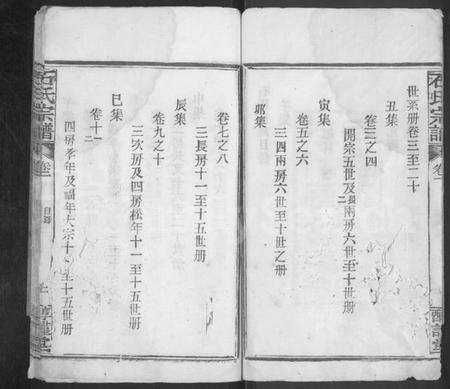 石氏宗譜
卷一
世系册卷三至二十
丑集
卷三之四
開宗五世及長二兩房六世至十世册
寅集
卷五之六
三四兩房六世至十世之册
卯集
卷七之八
三長房十一至十五世册
辰集
卷九之十
三次房及四房松年十一至十五世册
巳集
卷十一二
四房季年及福年大宗十一至十五世册
石氏宗譜
卷一
目錄